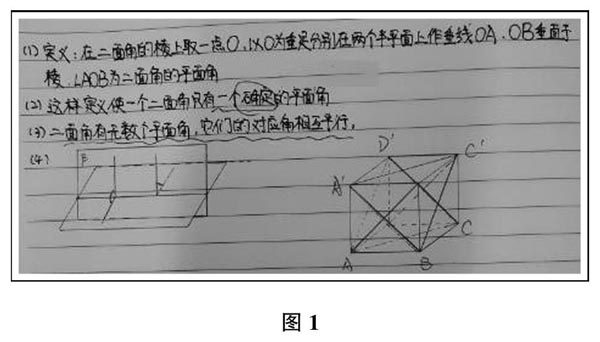 (1) 定义:在二面角的棱上取一点O,以O为垂足分别在两个半平面上作垂线OA、OB垂直于
棱,∠AOB为二面角的平面角
(2) 这样定义使一个二面角只有一个确定的平面角
(3) 二面角有无数个平面角,它们的对应角相互平行。
(4)
β
D'
C'
A'
C
A
B
图 1